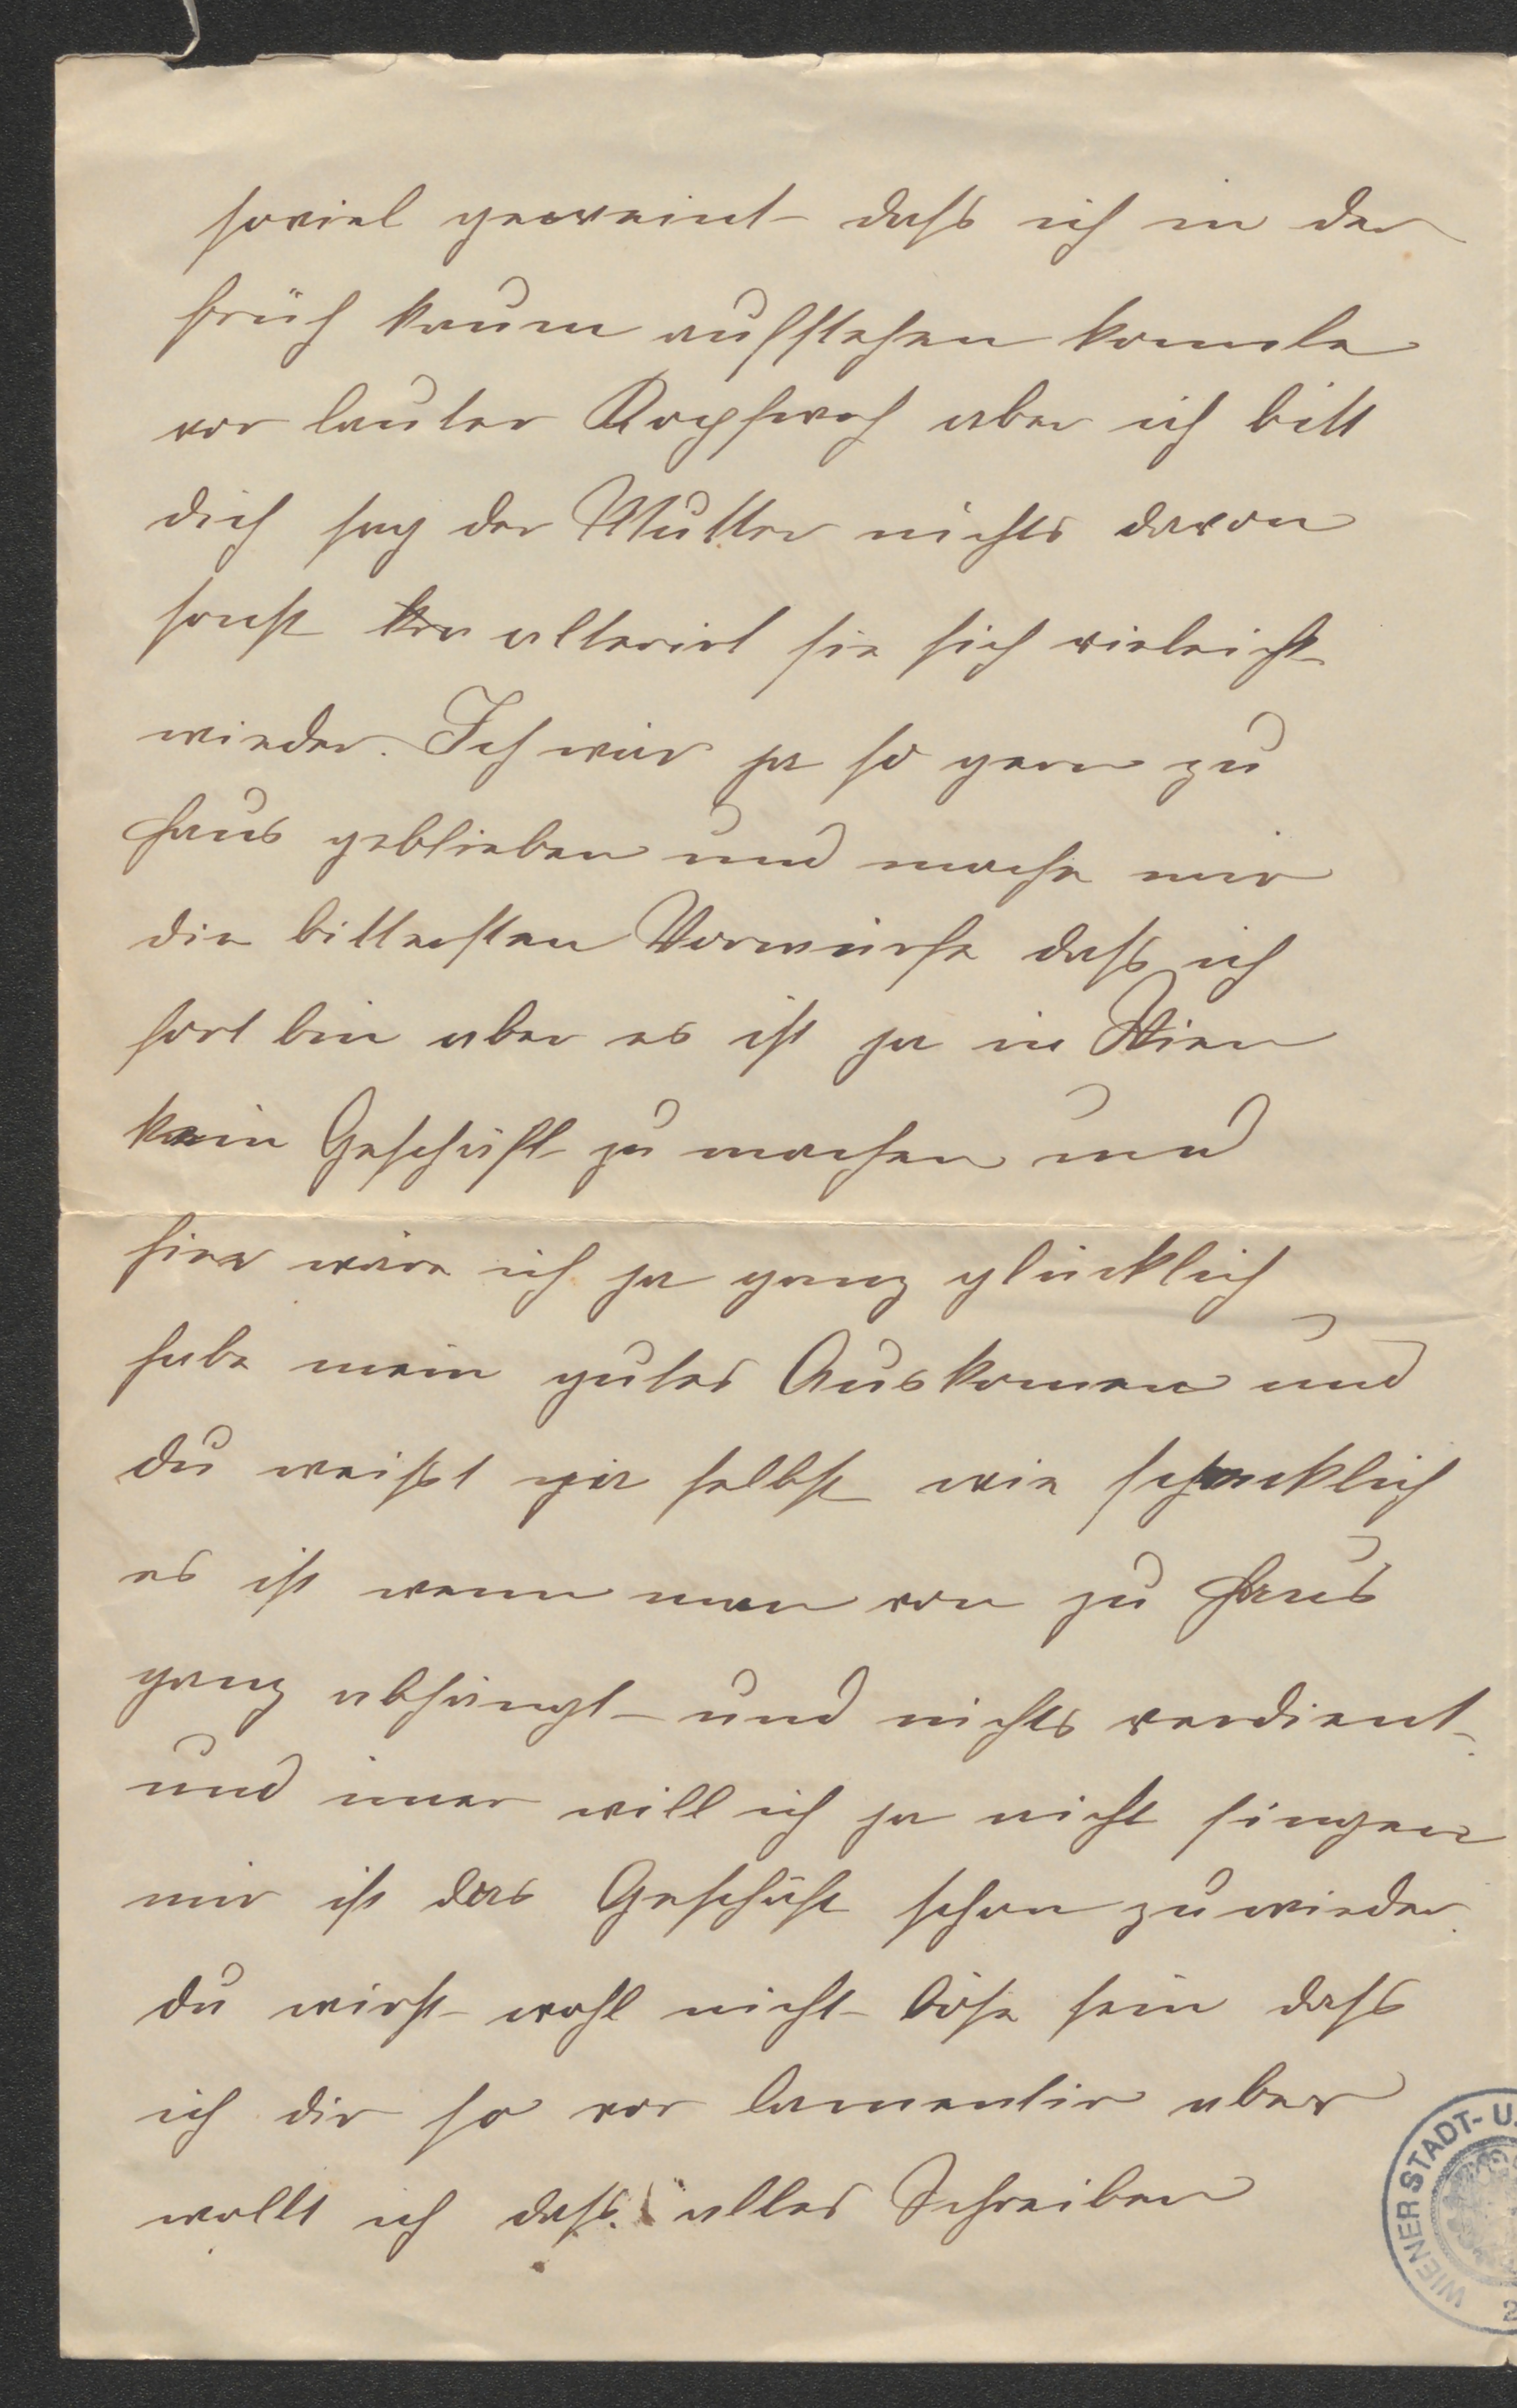 soviel geweint dass ich in der
früh kaum aufstehen konnte
vor lauter Kopfweh aber ich bitt
dich sag der Mutter nichts davon
sonst alterirt sie sich vieleicht
wieder. Ich wär ja so gern zu
Haus geblieben und mache mir
die bittersten Vorwürfe dass ich
fort bin aber es ist ja in Wien
kein Geschäft zu machen und
hier wäre ich ja ganz glücklich
habe mein gutes Auskomen und
du weisst ja selbst wie schrecklich
es ist wenn man von zu Haus
ganz abhängt und nichts verdient
und imer will ich ja nicht singen
mir ist das Geschäft schon zuwieder
du wirst wohl nicht böse sein dass
ich dir so vor lamentir aber
wollt ich dass alles Schreiben
WIENER STADT- U.